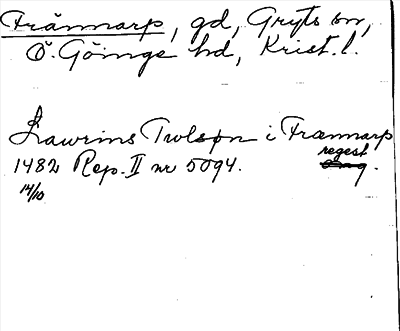 Frännarp, gd, Gryts sn,
Ö. Göinge hd, Krist. l.
Lawrins Trolspn i Frannarp
1482 Rep. II nr 5094. regest.
14/10